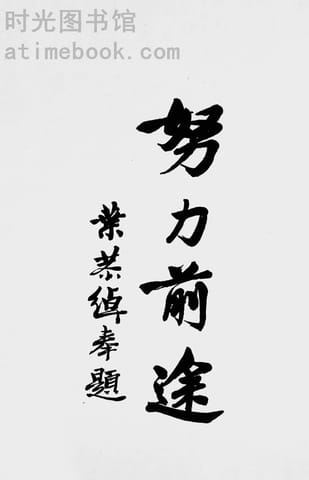 时光图书馆
atimebook.com
努力前途
葉恭綽奉題